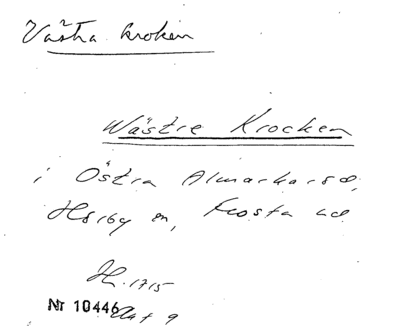 Västra kroken
Wästre Krocken
i Östra Almarkarsd,
Hörby sn, Frosta hd
H. 1715
Nr 10446 Akt 9